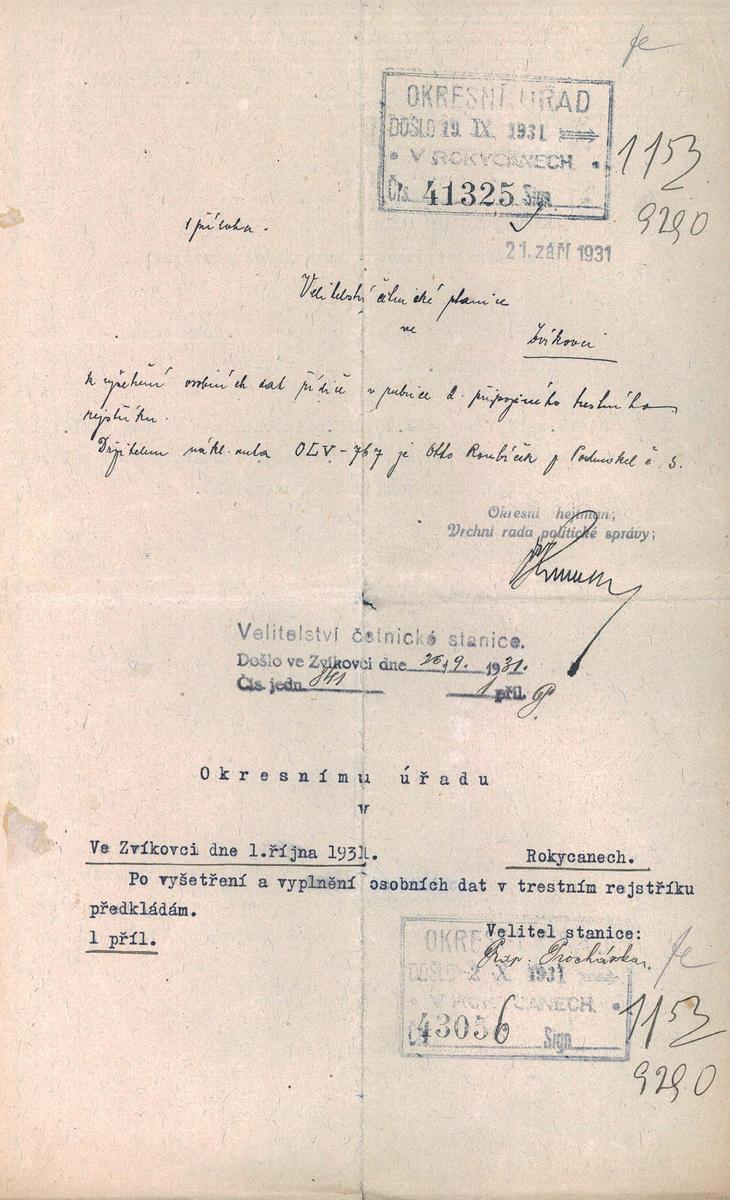 OKRESNÍ ÚŘAD
DOŠLO 19. IX. 1931
V ROKYCANECH
Čís. 41325 Sign.
1153
9290
21. září 1931
1 příloha.
Velitelství četnické stanice
ve
Zvíkovci
k vyšetření osobních dat řidiče v rubrice d. připojeného trestního
rejstříku.
Držitelem nákl. auta je Otto Roubíček Podmokel č. 3.
Okresní hejtman;
Vrchní rada politické správy;
Velitelství četnické stanice.
Došlo ve Zvíkovci dne 26/9. 1931.
Čís. jedn. 841 příl.
Okresnímu úřadu
v
Ve Zvíkovci dne 1.října 1931.
Rokycanech.
Po vyšetření a vyplnění osobních dat v trestním rejstříku
předkládám.
1 příl.
Velitel stanice:
Procházka.
OKRESNÍ
DOŠLO -2. X. 1931
V ROKYCANECH
43056 Sign.
1153
9290